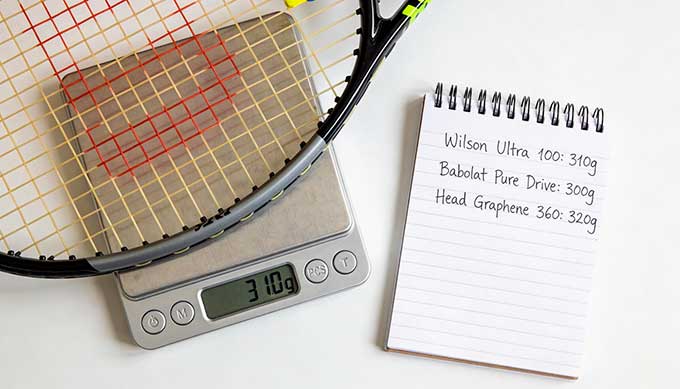 310g
PCS
M
T
Wilson Ultra 100: 310g
Babolat Pure Drive: 300g
Head Graphene 360: 320g